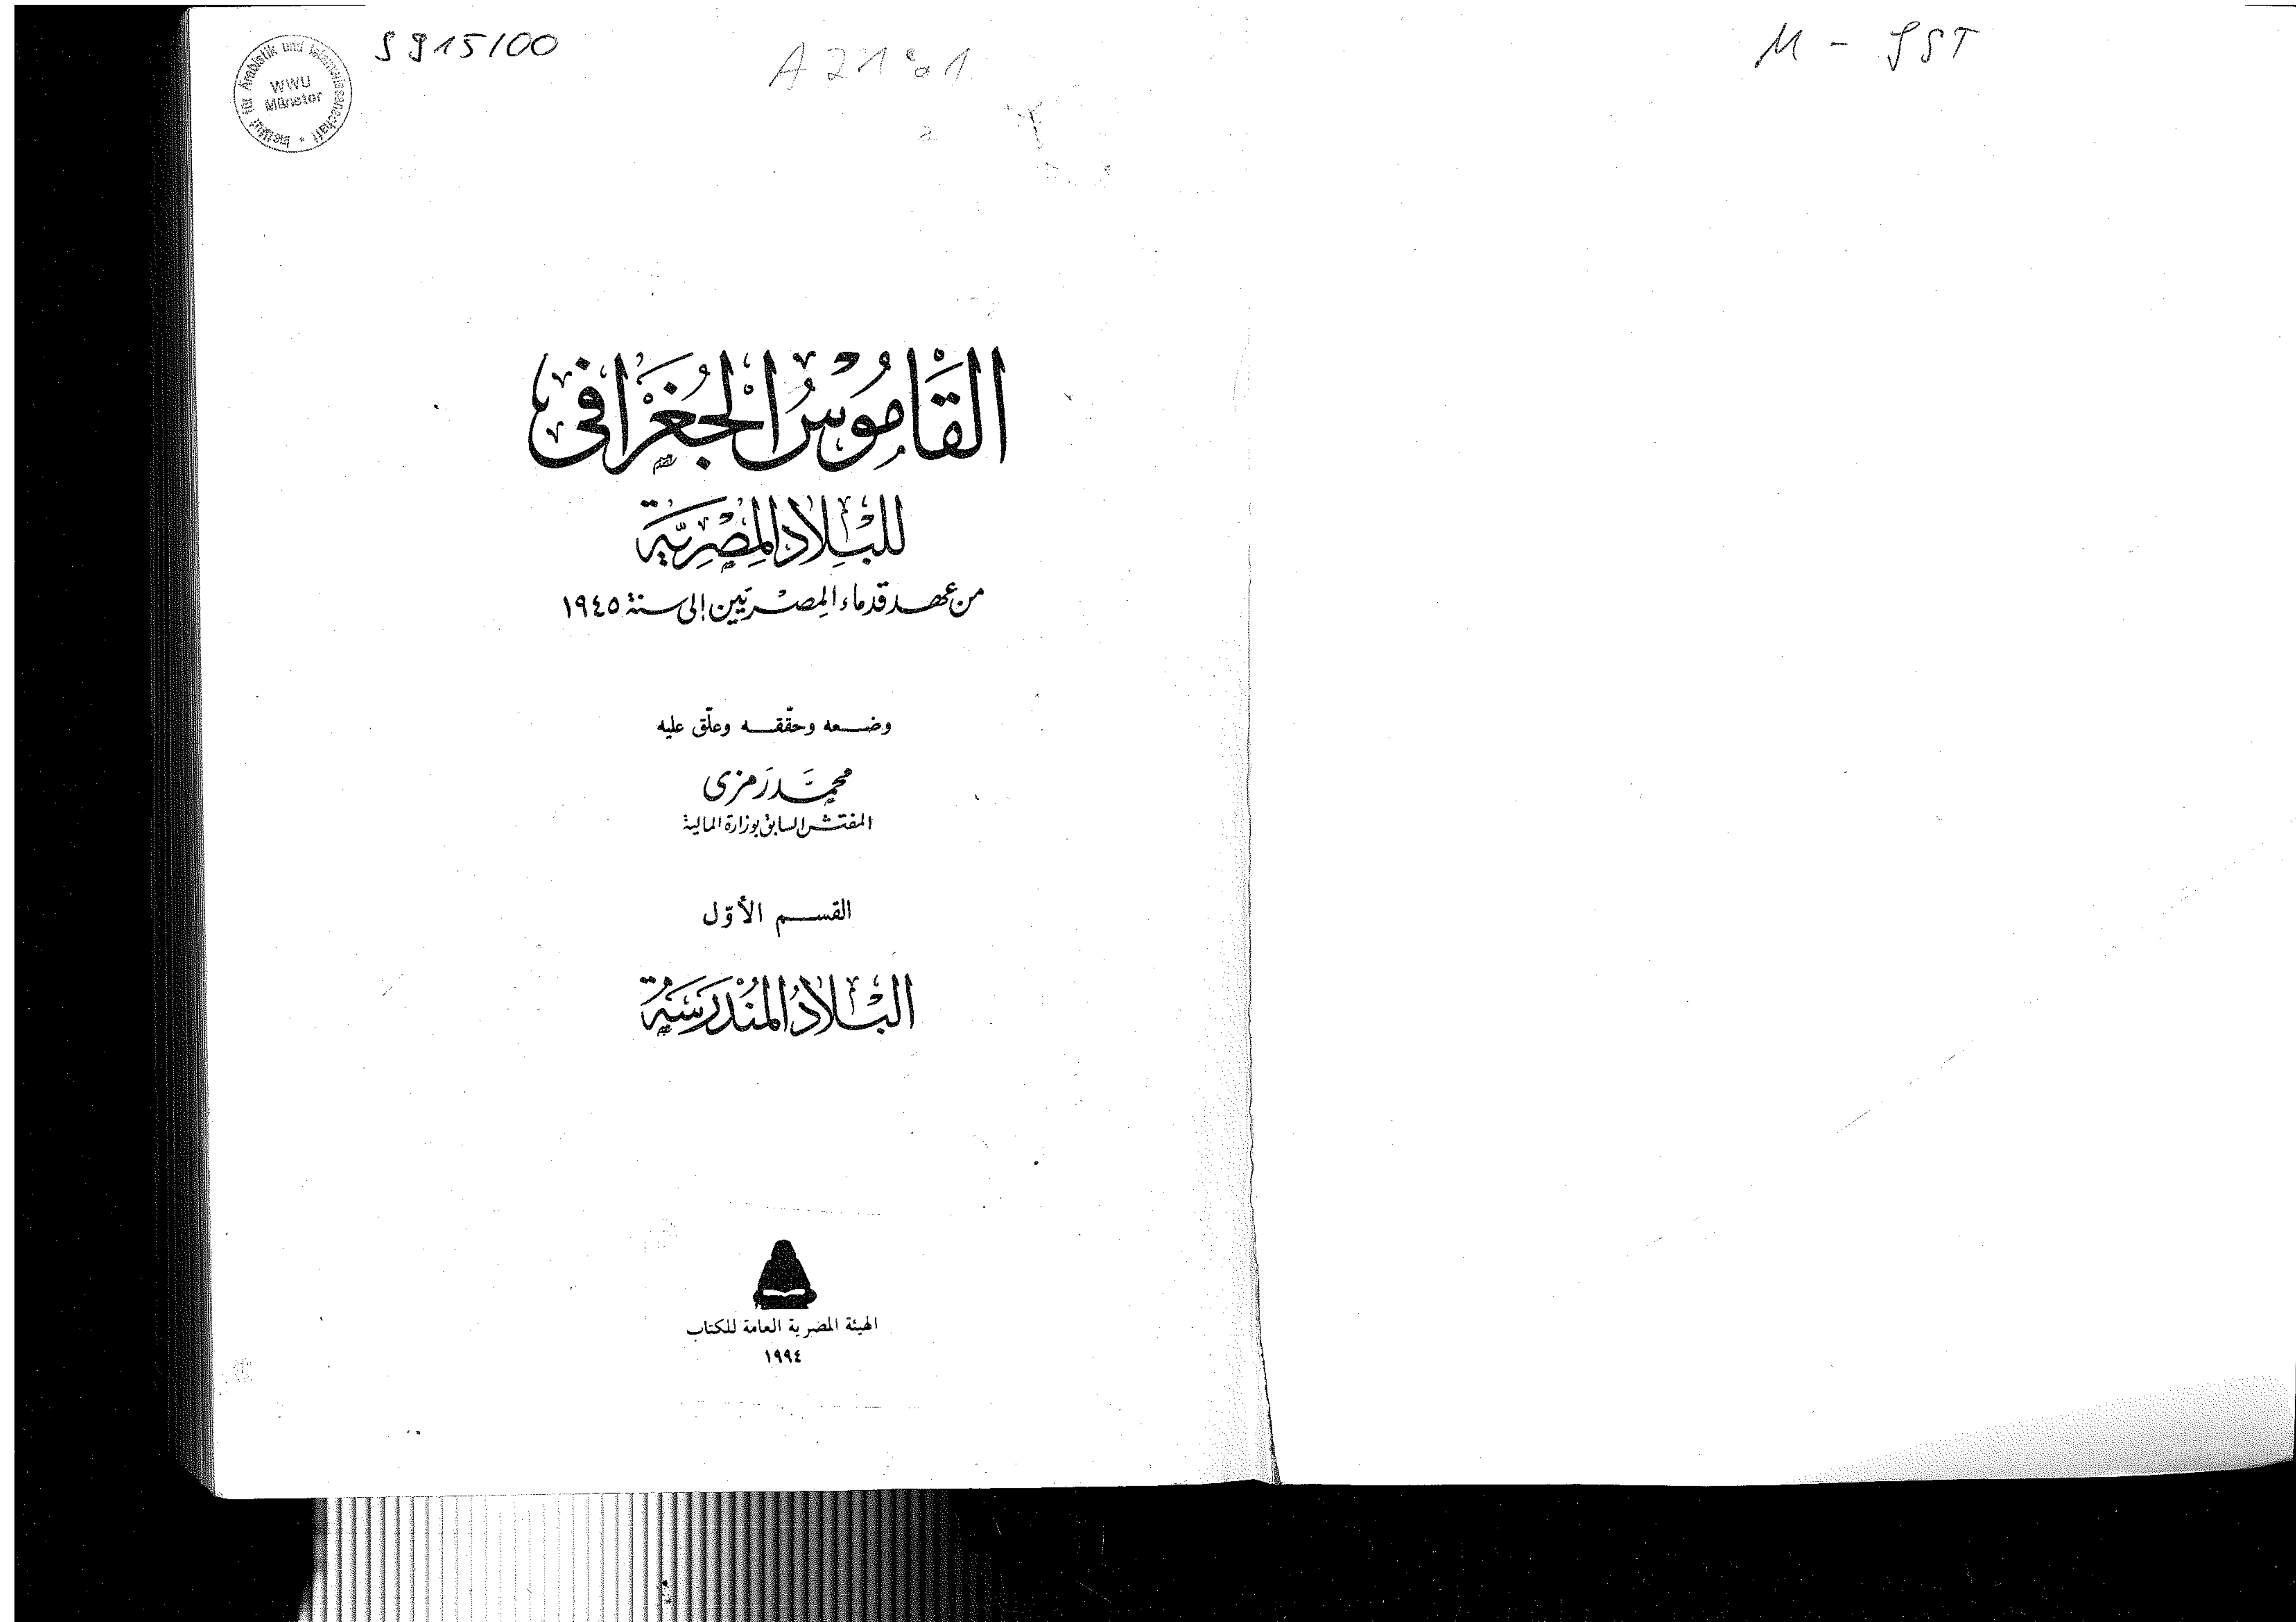 S915/00
A21
M - SST
Institut für Arabistik und Islamwissenschaft
WWU
Münster
القَاموُسُ الجُغرَافى
للبِلادِ المِصْرِيَّة
من عهد قدماء المِصْريّين إلى سنة ١٩٤٥
وضعه وحقّقه وعلّق عليه
محمَّد رَمزى
المفتش السابق بوزارة المالية
القسم الأوّل
البْلادُ المُنْدَرسَةُ
الهيئة المصرية العامة للكتاب
١٩٩٤